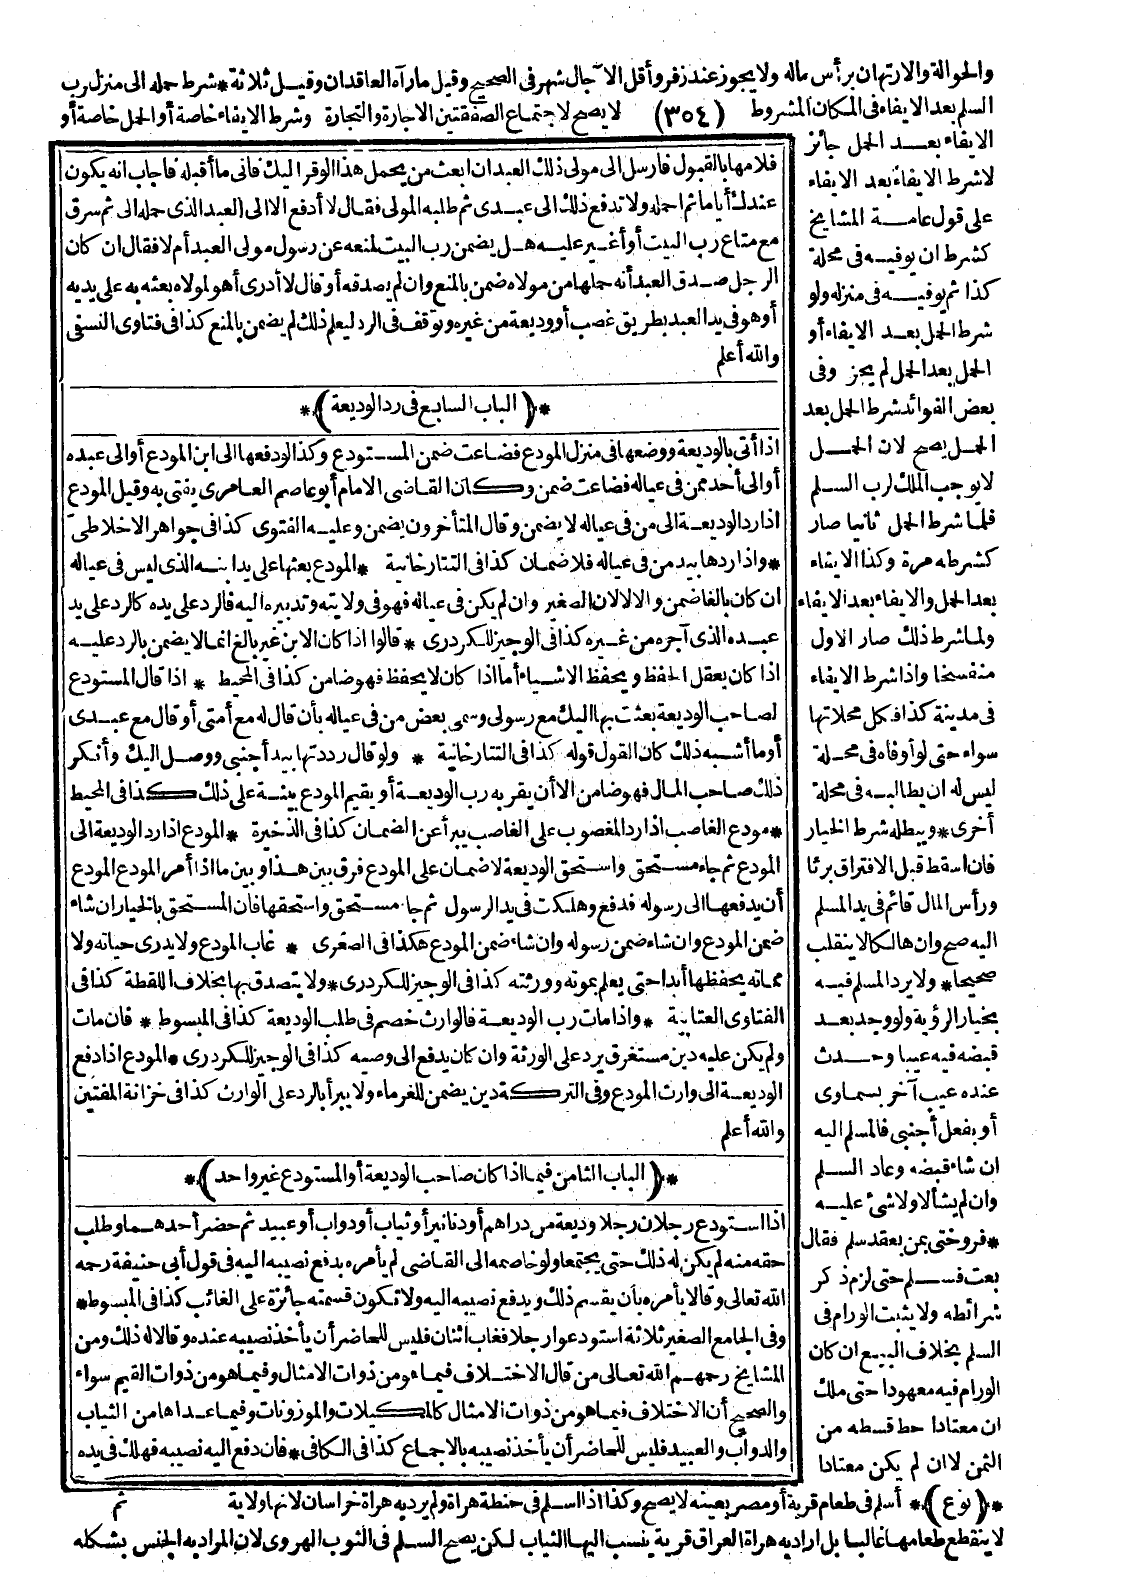 والحوالة والارتهان برأس ماله ولا يجوز عند زفر وأقل الآجال شهر فى الصحيح وقيل مارآه العاقدان وقيل ثلاثة * شرط حمله الى منزل رب
السلم بعد الايفاء فى المكان المشروط (٣٥٤) لا يصح لاجتماع الصفقتين الاجارة والتجارة وشرط الايفاء خاصة أو الحمل خاصة أو
الايفاء بعد الحمل جائز
لا شرط الايفاء بعد الايفاء
على قول عامة المشايخ
كشرط ان يوفيه فى محلة
كذا ثم يوفيه فى منزله ولو
شرط الحمل بعد الايفاء أو
الحمل بعد الحمل لم يجز وفى
بعض الفوائد شرط الحمل بعد
الحمل يصح لان الحمل
لا يوجب الملك لرب السلم
فلما شرط الحمل ثانيا صار
كشرطه مرة وكذا الايفاء
بعد الحمل والايفاء بعد الايفاء
ولما شرط ذلك صار الاول
منفسخا واذا شرط الايفاء
فى مدينة كذا فكل محلاتها
سواء حتى لو أوفاه فى محلة
ليس له ان يطالبه فى محلة
أخرى * ويبطله شرط الخيار
فان اسقط قبل الافتراق برئا
ورأس المال قائم فى يد المسلم
اليه صح وان هالكا لا ينقلب
صحيحا * ولا يرد المسلم فيه
بخيار الرؤية ولو وجد بعد
قبضه فيه عيبا وحدث
عنده عيب آخر بسماوى
أو بفعل أجنبى فالمسلم اليه
ان شاء قبضه وعاد السلم
وان لم يشأ لا ولا شئ عليه
* فروختى بمن بعقد سلم فقال
بعت فسلم حتى لزم ذكر
شرائطه ولا يثبت الورام فى
السلم بخلاف البيع ان كان
الورام فيه معهودا حتى ملك
ان معتادا حط قسطه من
الثمن لا ان لم يكن معتادا
فلامها بالقبول فارسل الى مولى ذلك العبد ان ابعث من يحمل هذا الوقر اليك فانى ما أقبله فاجاب انه يكون
عندك أياما ثم احمله ولا تدفع ذلك الى عبدى ثم طلبه المولى فقال لا أدفع الا الى العبد الذى حمله الى ثم سرق
مع متاع رب البيت أو أغير عليه هل يضمن رب البيت لمنعه عن رسول مولى العبد أم لا فقال ان كان
الرجل صدق العبد أنه حملها من مولاه ضمن بالمنع وان لم يصدقه أو قال لا أدرى أهو لمولاه بعثه به على يديه
أو هو فى يد العبد بطريق غصب أو وديعة من غيره وتوقف فى الرد ليعلم ذلك لم يضمن بالمنع كذا فى فتاوى النسفى
والله أعلم
* (الباب السابع فى رد الوديعة) *
اذا أتى بالوديعة ووضعها فى منزل المودع فضاعت ضمن المستودع وكذا لو دفعها الى ابن المودع أو الى عبده
أو الى أحد ممن فى عياله فضاعت ضمن وكان القاضى الامام أبو عاصم العامرى يفتى به وقيل المودع
اذا رد الوديعة الى من فى عياله لا يضمن وقال المتأخرون يضمن وعليه الفتوى كذا فى جواهر الاخلاطى
* واذا ردها بيد من فى عياله فلا ضمان كذا فى التتارخانية * المودع بعثها على يد ابنه الذى ليس فى عياله
ان كان بالغا ضمن والا لا لان الصغير وان لم يكن فى عياله فهو فى ولايته وتدبيره اليه فالرد على يده كالرد على يد
عبده الذى آجره من غيره كذا فى الوجيز للكردرى * قالوا اذا كان الابن غير بالغ انما لا يضمن بالرد عليه
اذا كان يعقل الحفظ ويحفظ الاشياء أما اذا كان لا يحفظ فهو ضامن كذا فى المحيط * اذا قال المستودع
لصاحب الوديعة بعثت بها اليك مع رسولى وسمى بعض من فى عياله بأن قال له مع أمتى أو قال مع عبدى
أو ما أشبه ذلك كان القول قوله كذا فى التتارخانية * ولو قال رددتها بيد أجنبى ووصل اليك وأنكر
ذلك صاحب المال فهو ضامن الا أن يقر به رب الوديعة أو يقيم المودع بينة على ذلك كذا فى المحيط
* مودع الغاصب اذا رد المغصوب على الغاصب يبرأ عن الضمان كذا فى الذخيرة * المودع اذا رد الوديعة الى
المودع ثم جاء مستحق واستحق الوديعة لا ضمان على المودع فرق بين هذا وبين ما اذا أمر المودع المودع
أن يدفعها الى رسوله فدفع وهلكت فى يد الرسول ثم جاء مستحق واستحقها فان المستحق بالخيار ان شاء
ضمن المودع وان شاء ضمن رسوله وان شاء ضمن المودع هكذا فى الصغرى * غاب المودع ولا يدرى حياته ولا
مماته يحفظها أبدا حتى يعلم بموته وورثته كذا فى الوجيز للكردرى * ولا يتصدق بها بخلاف اللقطة كذا فى
الفتاوى العتابية * واذا مات رب الوديعة فالوارث خصم فى طلب الوديعة كذا فى المبسوط * فان مات
ولم يكن عليه دين مستغرق يرد على الورثة وان كان يدفع الى وصيه كذا فى الوجيز للكردرى * المودع اذا دفع
الوديعة الى وارث المودع وفى التركة دين يضمن للغرماء ولا يبرأ بالرد على الوارث كذا فى خزانة المفتين
والله أعلم
* (الباب الثامن فيما اذا كان صاحب الوديعة أو المستودع غير واحد) *
اذا استودع رجلان رجلا وديعة من دراهم أو دنانير أو ثياب أو دواب أو عبيد ثم حضر أحدهما وطلب
حقه منه لم يكن له ذلك حتى يجتمعا ولو خاصمه الى القاضى لم يأمره بدفع نصيبه اليه فى قول أبى حنيفة رحمه
الله تعالى وقالا يأمره بأن يقسم ذلك ويدفع نصيبه اليه ولا تكون قسمته جائزة على الغائب كذا فى المبسوط *
وفى الجامع الصغير ثلاثة استودعوا رجلا فغاب اثنان فليس للحاضر أن يأخذ نصيبه عنده وقالا له ذلك ومن
المشايخ رحمهم الله تعالى من قال الاختلاف فيما هو من ذوات الامثال وفيما هو من ذوات القيم سواء
والصحيح أن الاختلاف فيما هو من ذوات الامثال كالمكيلات والموزونات وفيما عداها من الثياب
والدواب والعبيد فليس للحاضر أن يأخذ نصيبه بالاجماع كذا فى الكافى * فان دفع اليه نصيبه فهلك فى يده
ثم
* (نوع) * أسلم فى طعام قرية أو مصر بعينه لا يصح وكذا اذا اسلم فى حنطة هراة ولم يرد به هراة خراسان لانها ولاية
لا ينقطع طعامها غالبا بل اراد به هراة العراق قرية ينسب اليها الثياب لكن يصح السلم فى الثوب الهروى لان المراد به الجنس بشكله